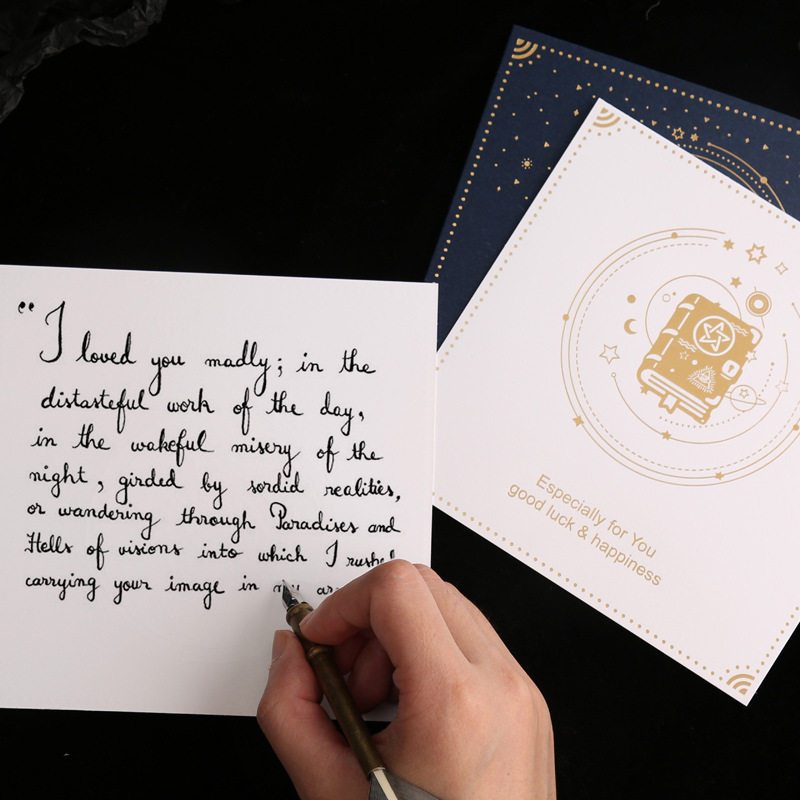 “I loved you madly; in the
distasteful work of the day,
in the wakeful misery of the
night, girded by sordid realities,
or wandering through Paradises and
Hells of visions into which I rushed
carrying your image in my
Especially for You
good luck & happiness